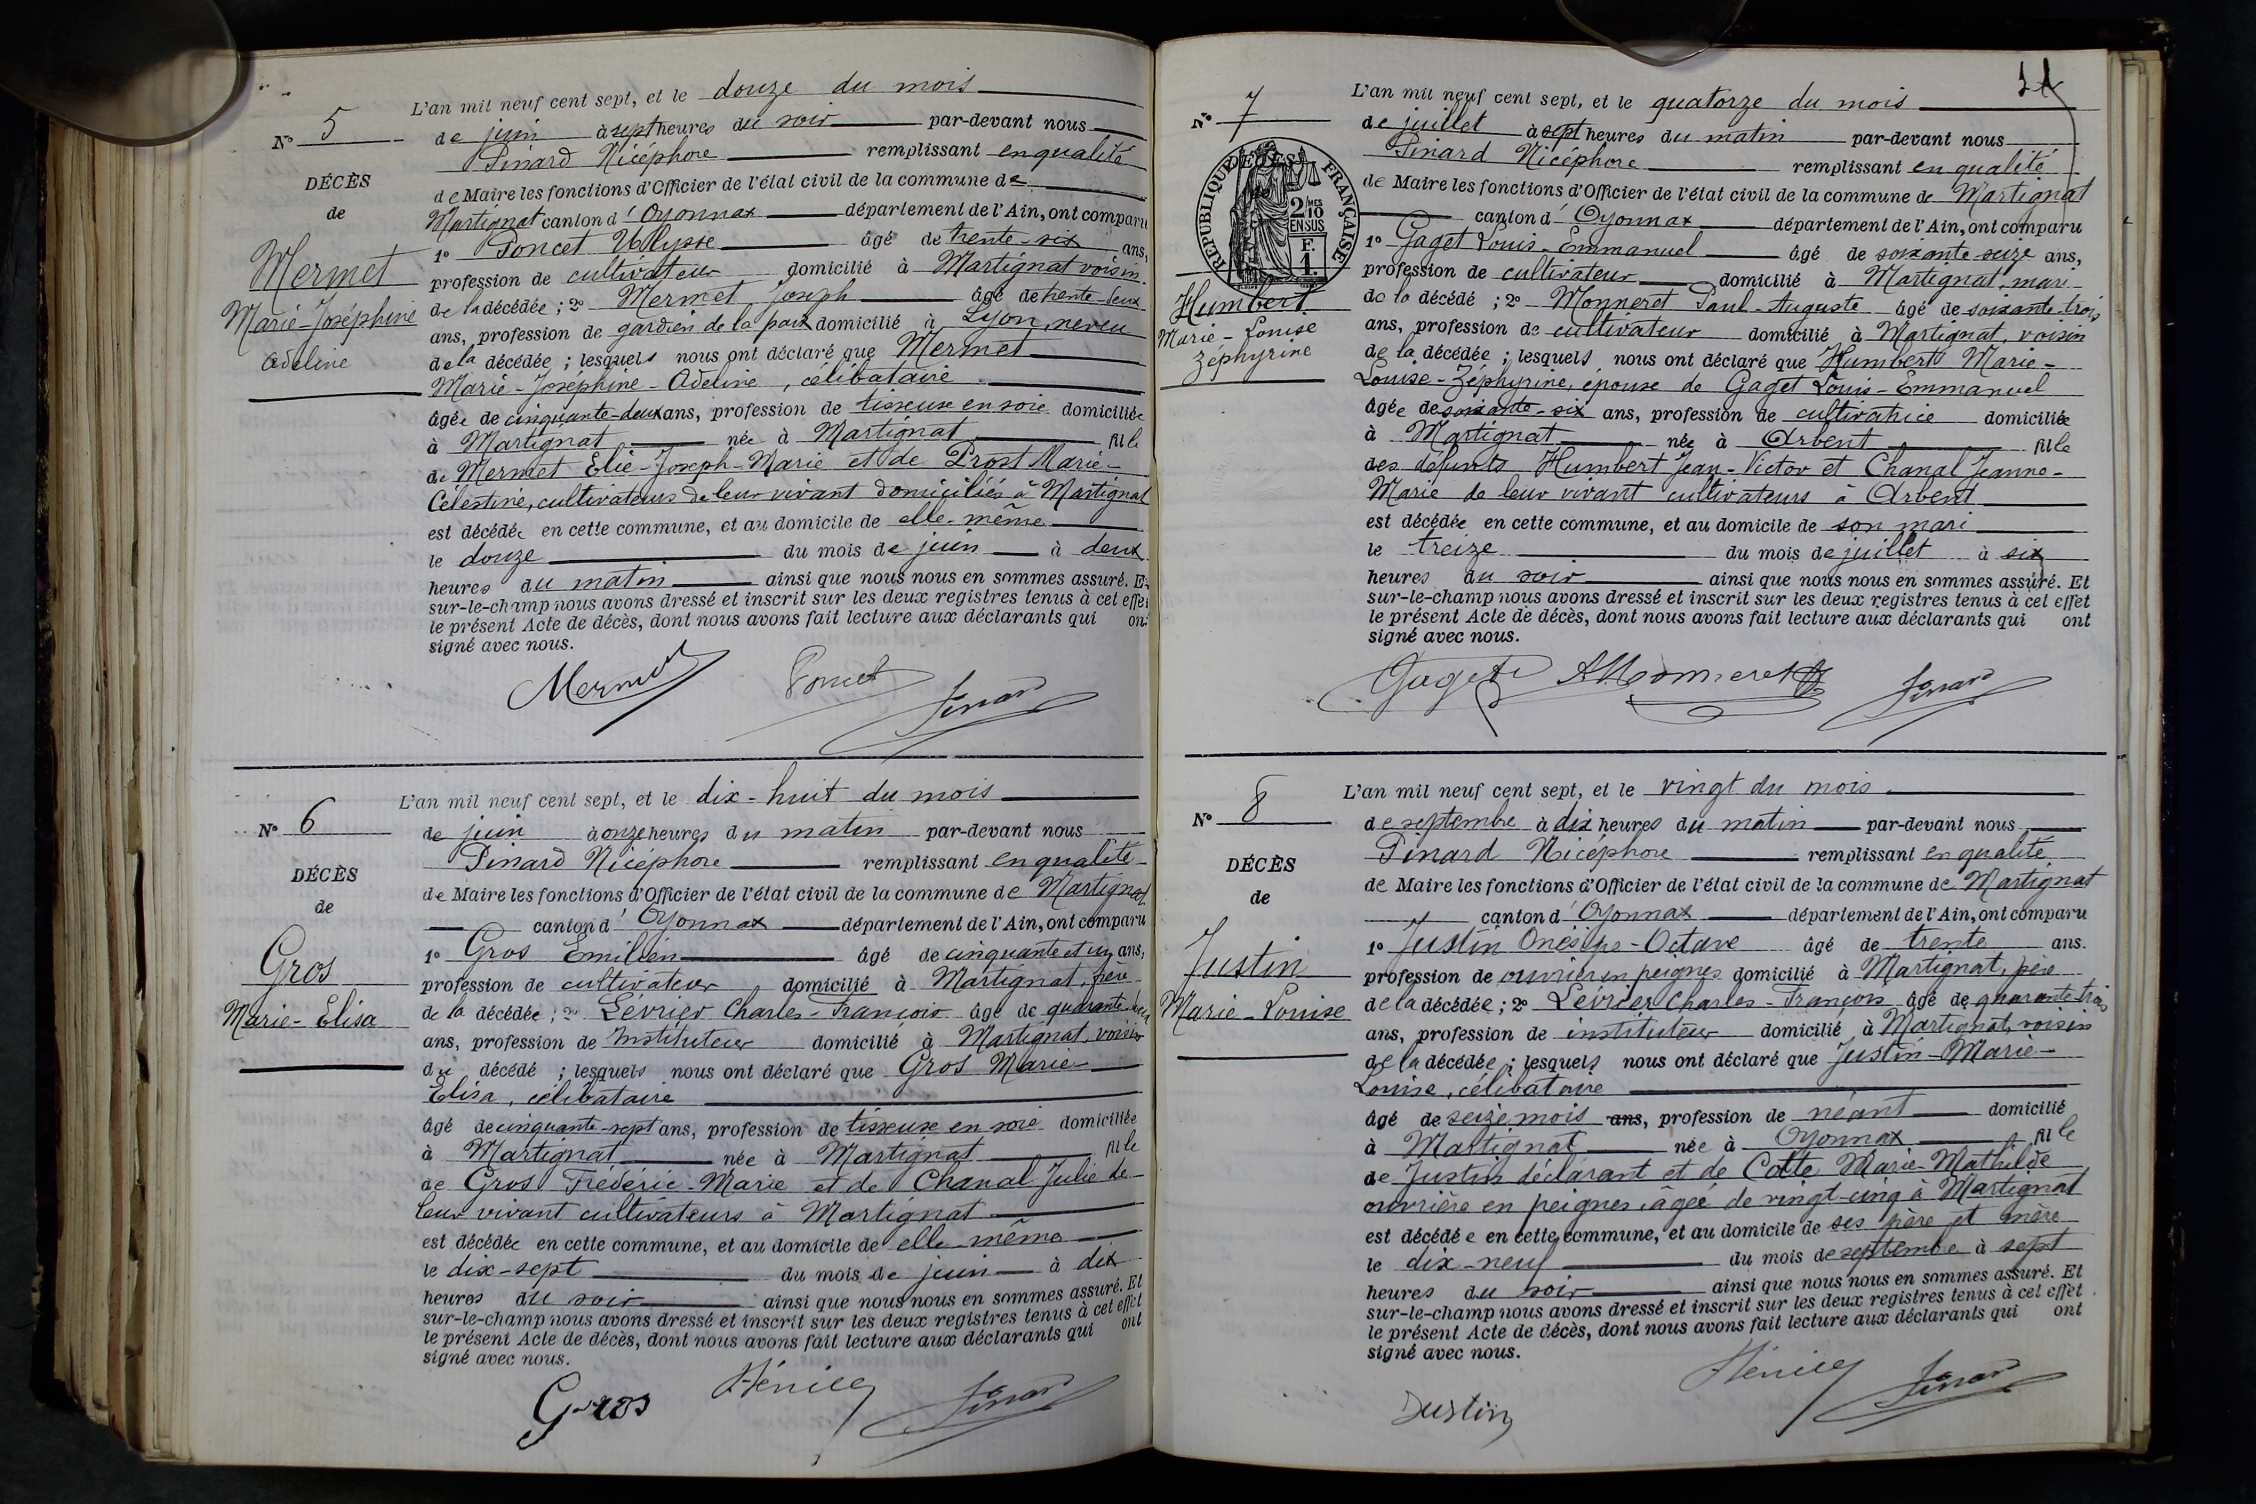 L'an mil neuf cent sept, et le douze du mois
N° 5
de juin à sept heures du soir par-devant nous
Pinard Nicéphore remplissant en qualité
DÉCÈS
de Maire les fonctions d'Officier de l'état civil de la commune de
de
Martignat canton d'Oyonnax département de l'Ain, ont comparu
1° Poncet Ulysse âgé de trente-six ans,
Mermet
profession de cultivateur domicilié à Martignat voisin
Marie-Joséphine
de la décédée ; 2° Mermet Joseph âgé de trente-deux
ans, profession de gardien de la paix domicilié à Lyon, neveu
Adeline
de la décédée ; lesquels nous ont déclaré que Mermet
Marie-Joséphine-Adeline, célibataire
âgée de cinquante-deux ans, profession de tisseuse en soie domiciliée
à Martignat née à Martignat fille
de Mermet Elie-Joseph-Marie et de Prost Marie-
Célestine, cultivateurs de leur vivant domiciliés à Martignat
est décédée en cette commune, et au domicile de elle-même
le douze du mois de juin à deux
heures du matin ainsi que nous nous en sommes assuré. Et
sur-le-champ nous avons dressé et inscrit sur les deux registres tenus à cet effet
le présent Acte de décès, dont nous avons fait lecture aux déclarants qui ont
signé avec nous.
Mermet Poncet Pinard
L'an mil neuf cent sept, et le dix-huit du mois
N° 6
de juin à onze heures du matin par-devant nous
Pinard Nicéphore remplissant en qualité
DÉCÈS
de Maire les fonctions d'Officier de l'état civil de la commune de Martignat
de
canton d'Oyonnax département de l'Ain, ont comparu
1° Gros Emilien âgé de cinquante et un ans,
Gros
profession de cultivateur domicilié à Martignat, frère
Marie-Elisa
de la décédée ; 2° Lévrier Charles-François âgé de quarante
ans, profession de Instituteur domicilié à Martignat, voisin
du décédé ; lesquels nous ont déclaré que Gros Marie-
Elisa, célibataire
âgé de cinquante-sept ans, profession de tisseuse en soie domiciliée
à Martignat née à Martignat fille
de Gros Frédéric-Marie et de Chanal Julie de
leur vivant cultivateurs à Martignat
est décédée en cette commune, et au domicile de elle-même
le dix-sept du mois de juin à dix
heures du soir ainsi que nous nous en sommes assuré. Et
sur-le-champ nous avons dressé et inscrit sur les deux registres tenus à cet effet
le présent Acte de décès, dont nous avons fait lecture aux déclarants qui ont
signé avec nous.
Gros Pinard
L'an mil neuf cent sept, et le quatorze du mois
N° 7
de juillet à sept heures du matin par-devant nous
Pinard Nicéphore remplissant en qualité
de Maire les fonctions d'Officier de l'état civil de la commune de Martignat
RÉPUBLIQUE FRANÇAISE
2/10 MES EN SUS
F. 1.
canton d'Oyonnax département de l'Ain, ont comparu
1° Gaget Louis-Emmanuel âgé de soixante-seize ans,
profession de cultivateur domicilié à Martignat, mari
Humbert
de la décédé ; 2° Monneret Paul-Auguste âgé de soixante-trois
Marie-Louise
ans, profession de cultivateur domicilié à Martignat, voisin
Zéphyrine
de la décédée ; lesquels nous ont déclaré que Humbert Marie-
Louise-Zéphyrine, épouse de Gaget Louis-Emmanuel
âgée de soixante-six ans, profession de cultivatrice domiciliée
à Martignat née à Arbent fille
des défunts Humbert Jean-Victor et Chanal Jeanne-
Marie de leur vivant cultivateurs à Arbent
est décédée en cette commune, et au domicile de son mari
le treize du mois de juillet à six
heures du soir ainsi que nous nous en sommes assuré. Et
sur-le-champ nous avons dressé et inscrit sur les deux registres tenus à cet effet
le présent Acte de décès, dont nous avons fait lecture aux déclarants qui ont
signé avec nous.
Gaget Monneret Pinard
L'an mil neuf cent sept, et le vingt du mois
N° 8
de septembre à dix heures du matin par-devant nous
Pinard Nicéphore remplissant en qualité
DÉCÈS
de Maire les fonctions d'Officier de l'état civil de la commune de Martignat
de
canton d'Oyonnax département de l'Ain, ont comparu
1° Justin -Octave âgé de trente ans.
Justin
profession de ouvrier en peignes domicilié à Martignat, père
Marie-Louise
de la décédée ; 2° Lévrier Charles-François âgé de quarante-trois
ans, profession de instituteur domicilié à Martignat, voisin
de la décédée ; lesquels nous ont déclaré que Justin-Marie-
Louise, célibataire
âgé de seize mois ans, profession de néant domicilié
à Martignat née à Oyonnax fille
de Justin déclarant et de Cotte Marie-Mathilde
ouvrière en peignes, âgée de vingt-cinq à Martignat
est décédée en cette commune, et au domicile de ses père et mère
le dix-neuf du mois de septembre à sept
heures du soir ainsi que nous nous en sommes assuré. Et
sur-le-champ nous avons dressé et inscrit sur les deux registres tenus à cet effet
le présent Acte de décès, dont nous avons fait lecture aux déclarants qui ont
signé avec nous.
Justin Pinard